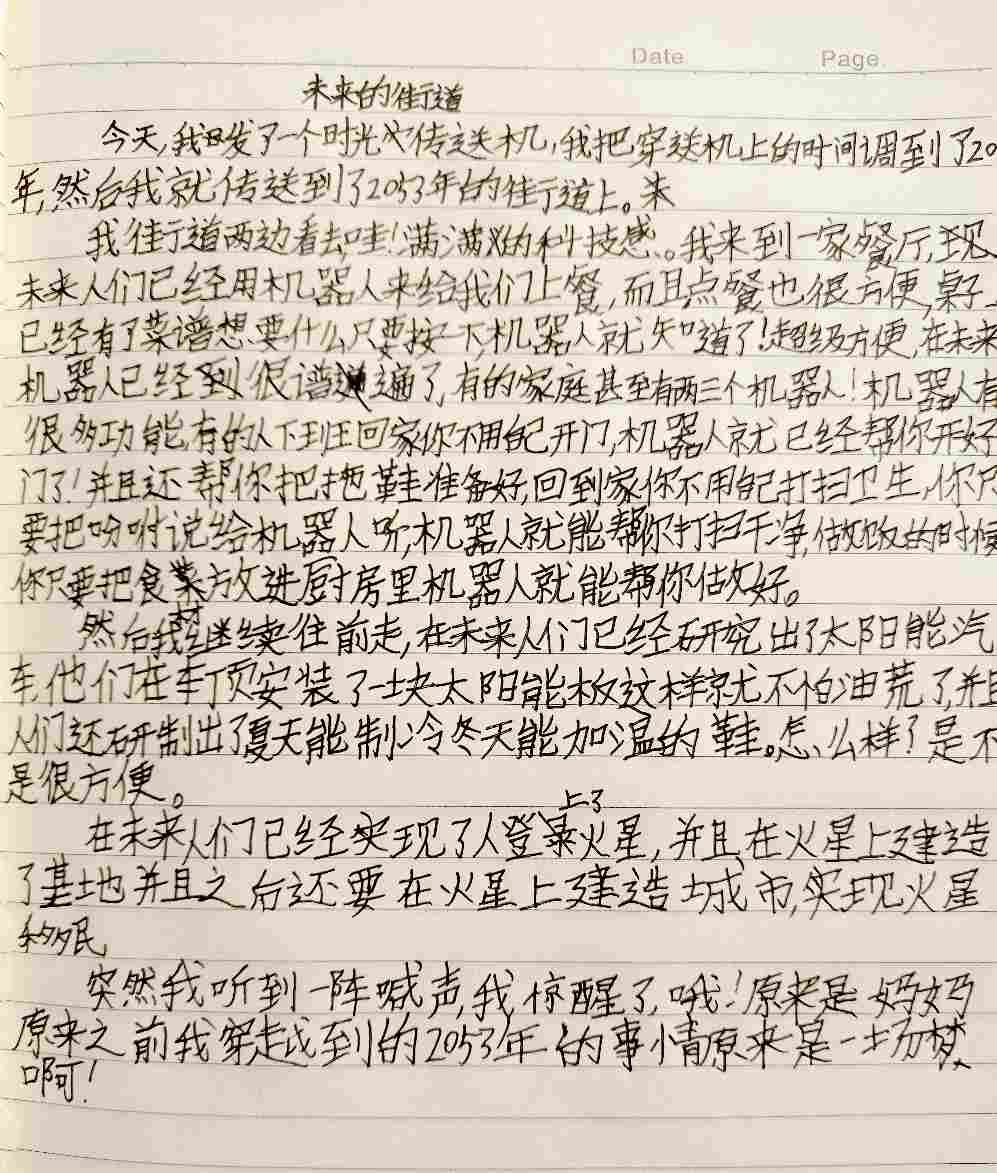 Date
Page.
未来的街道
今天,我发了一个时光传送机,我把穿送机上的时间调到了20
年,然后我就传送到了2053年的街道上。来
我往街道两边看去,哇!满满的科技感。我来到一家餐厅,现
未来人们已经用机器人来给我们上餐,而且点餐也很方便,桌子
已经有了菜谱想要什么只要按一下,机器人就知道了!超级方便,在未来
机器人已经到很谱遍了,有的家庭甚至有两三个机器人!机器人有
很多功能,有的人下班回家你不用自己开门,机器人就已经帮你开好
门了!并且还帮你把拖鞋准备好,回到家你不用自己打扫卫生,你只
要把吩咐说给机器人听,机器人就能帮你打扫干净,做饭的时候
你只要把食材放进厨房里机器人就能帮你做好。
然后我继续往前走,在未来人们已经研究出了太阳能汽
车,他们在车顶安装了一块太阳能板这样就不怕油荒了,并且
人们还研制出了夏天能制冷冬天能加温的鞋。怎么样?是不
是很方便。
在未来人们已经实现了人登上了火星,并且在火星上建造
了基地并且之后还要在火星上建造城市,实现火星
移民
突然我听到一阵喊声,我惊醒了,哦!原来是妈妈
原来之前我穿越到的2053年的事情原来是一场梦
啊!